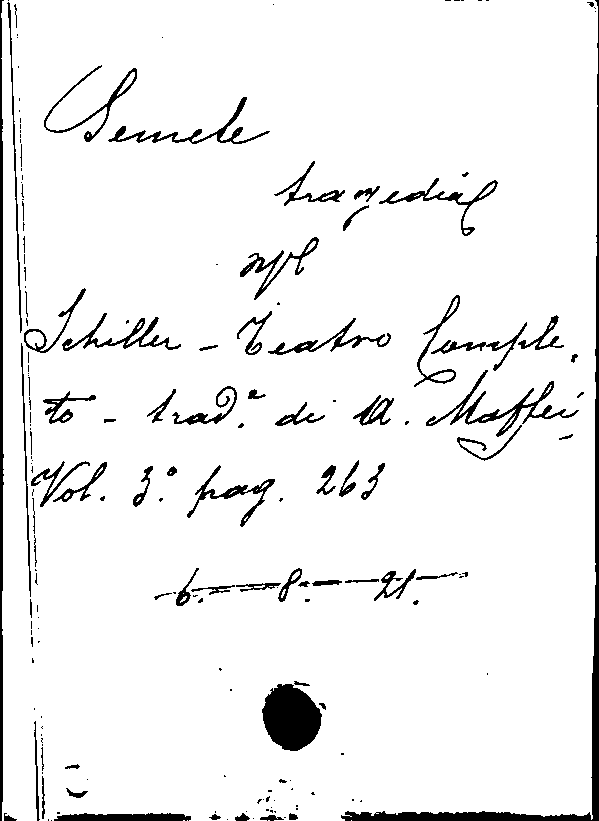 Semele
tragedia
Schiller - Teatro Comple
to - trad.ne di A. Maffei
Vol. 3.° pag. 263
6. 8. 21.